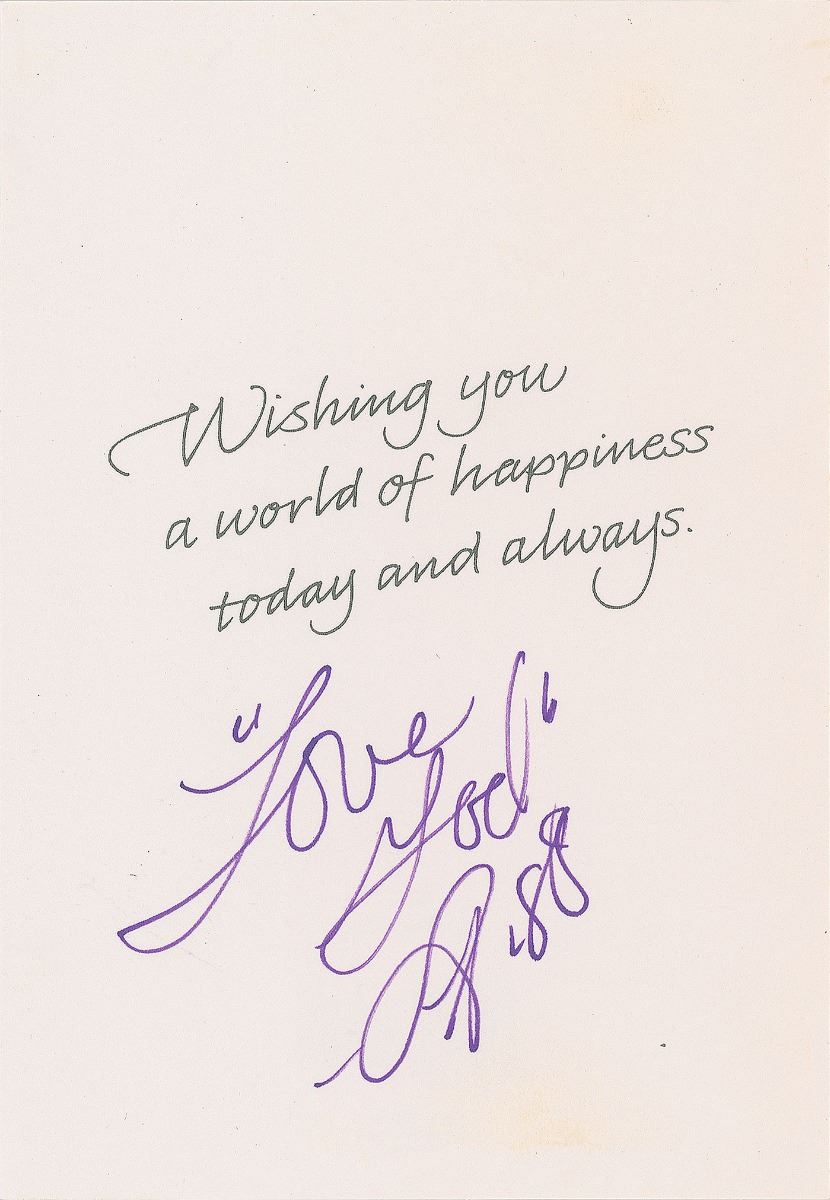 Wishing you
a world of happiness
today and always.
"Love
You!"
'88